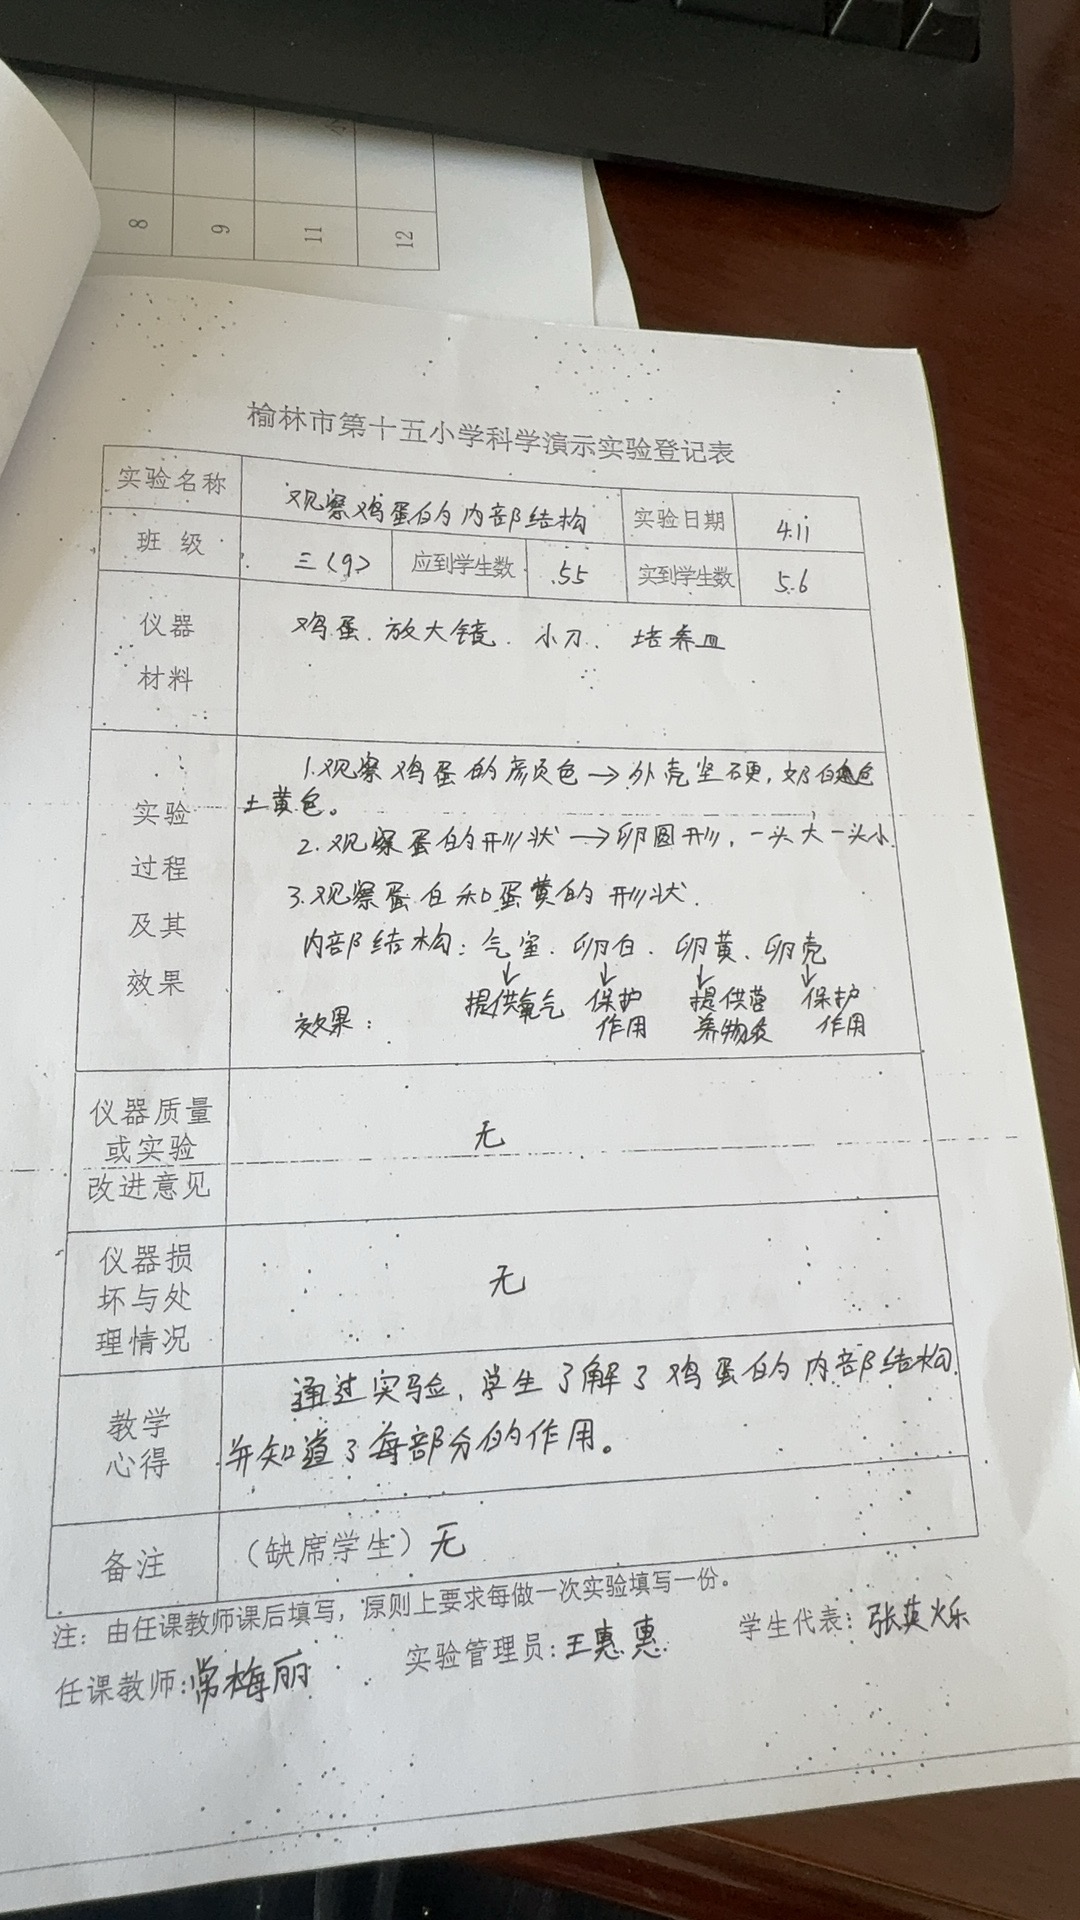 8
9
11
12
榆林市第十五小学科学演示实验登记表
实验名称 观察鸡蛋的内部结构 实验日期 4.11
班 级 三(9) 应到学生数 55 实到学生数 56
仪器 鸡蛋、放大镜、小刀、培养皿
材料
1.观察鸡蛋的颜色→外壳坚硬,奶白色
土黄色。
实验
2.观察蛋的形状→卵圆形,一头大一头小.
过程
3.观察蛋白和蛋黄的形状.
及其
内部结构:气室、卵白、卵黄、卵壳
效果
提供氧气 保护 提供营 保护
效果: 作用 养物质 作用
仪器质量
或实验 无
改进意见
仪器损
坏与处 无
理情况
通过实验,学生了解了鸡蛋的内部结构,
教学
心得 并知道了每部分的作用。
备注 (缺席学生)无
注:由任课教师课后填写,原则上要求每做一次实验填写一份。
任课教师:常梅丽 实验管理员:王惠惠 学生代表:张英烁